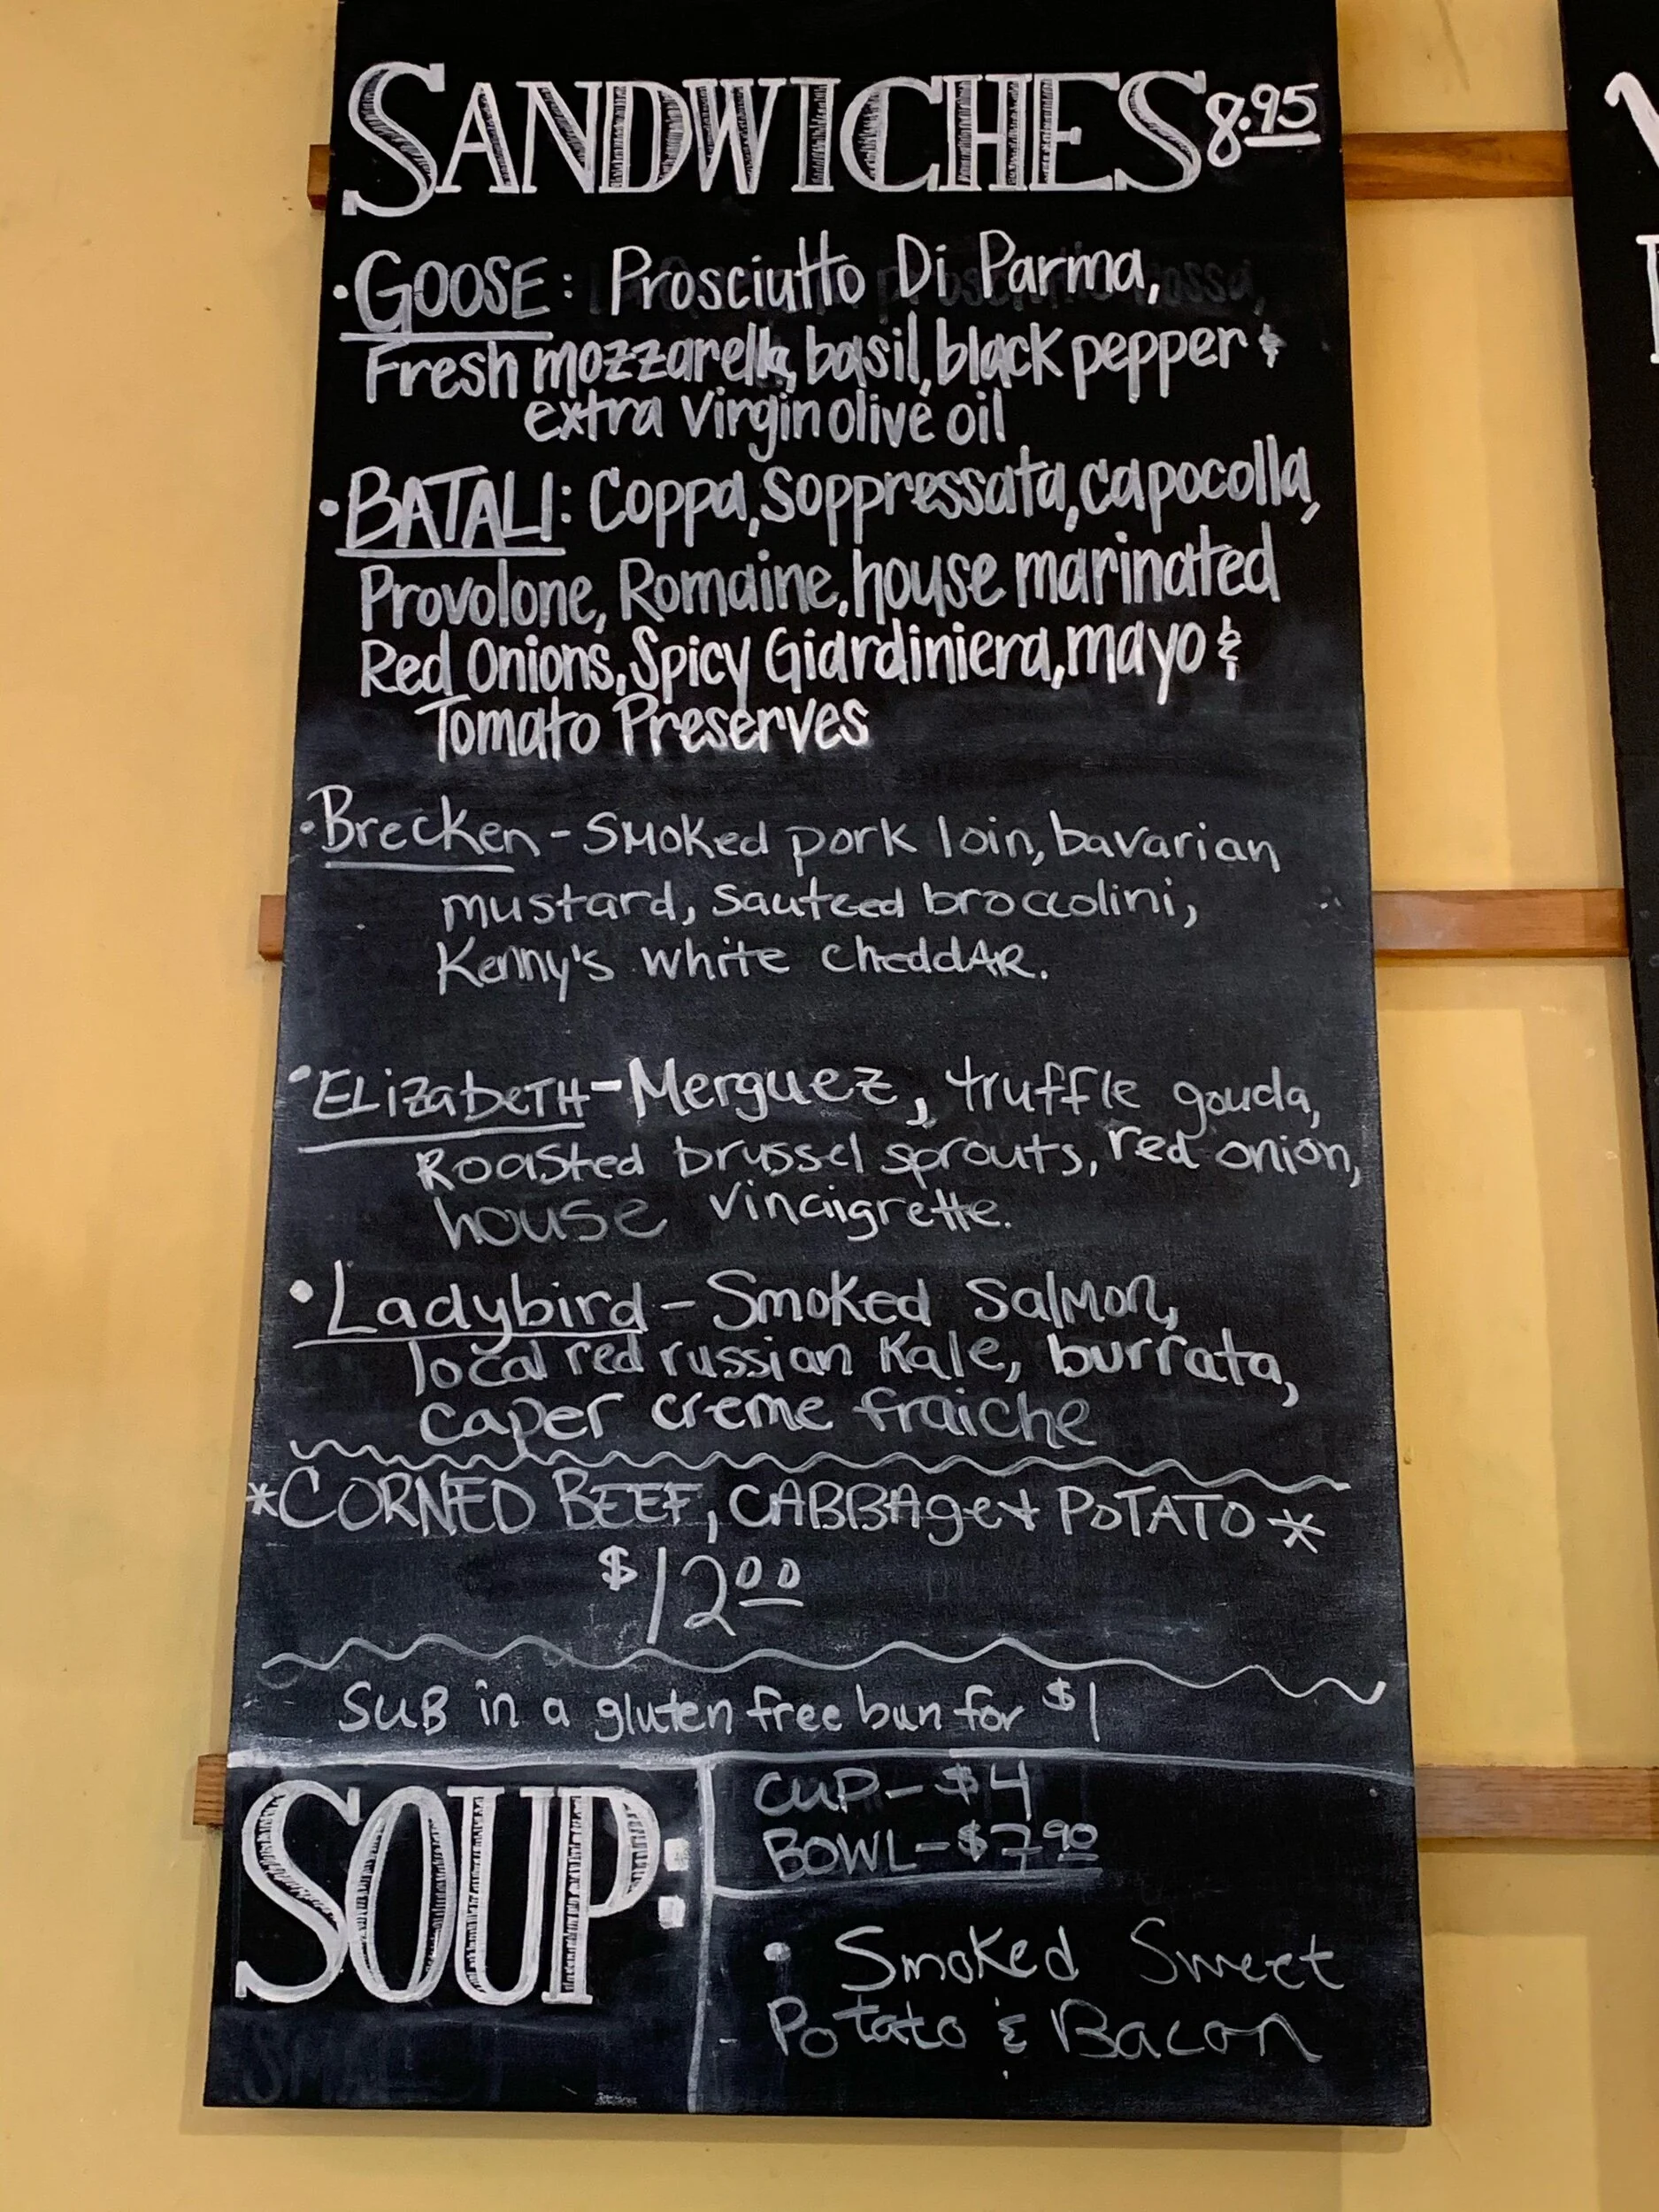 SANDWICHES 8.95
• GOOSE: Prosciutto Di Parma,
Fresh mozzarella, basil, black pepper &
extra virgin olive oil
• BATALI: Coppa, Soppressata, capocolla,
Provolone, Romaine, house marinated
Red Onions, Spicy Giardiniera, mayo &
Tomato Preserves
• Brecken - Smoked pork loin, bavarian
mustard, sauteed broccolini,
Kenny's white cheddAR.
• ELizabeTH - Merguez, truffle gouda,
Roasted brussel sprouts, red onion,
house vinaigrette.
• Ladybird - Smoked Salmon,
local red russian Kale, burrata,
caper creme fraiche
*CORNED BEEF, CABBAge + POTATO *
$12 00
SUB in a gluten free bun for $1
SOUP:
CUP - $4
BOWL - $7 90
• Smoked Sweet
Potato & Bacon